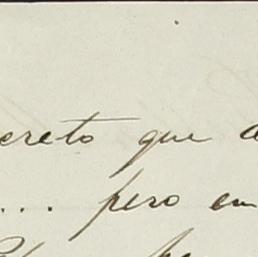 ecreto que
... pero en